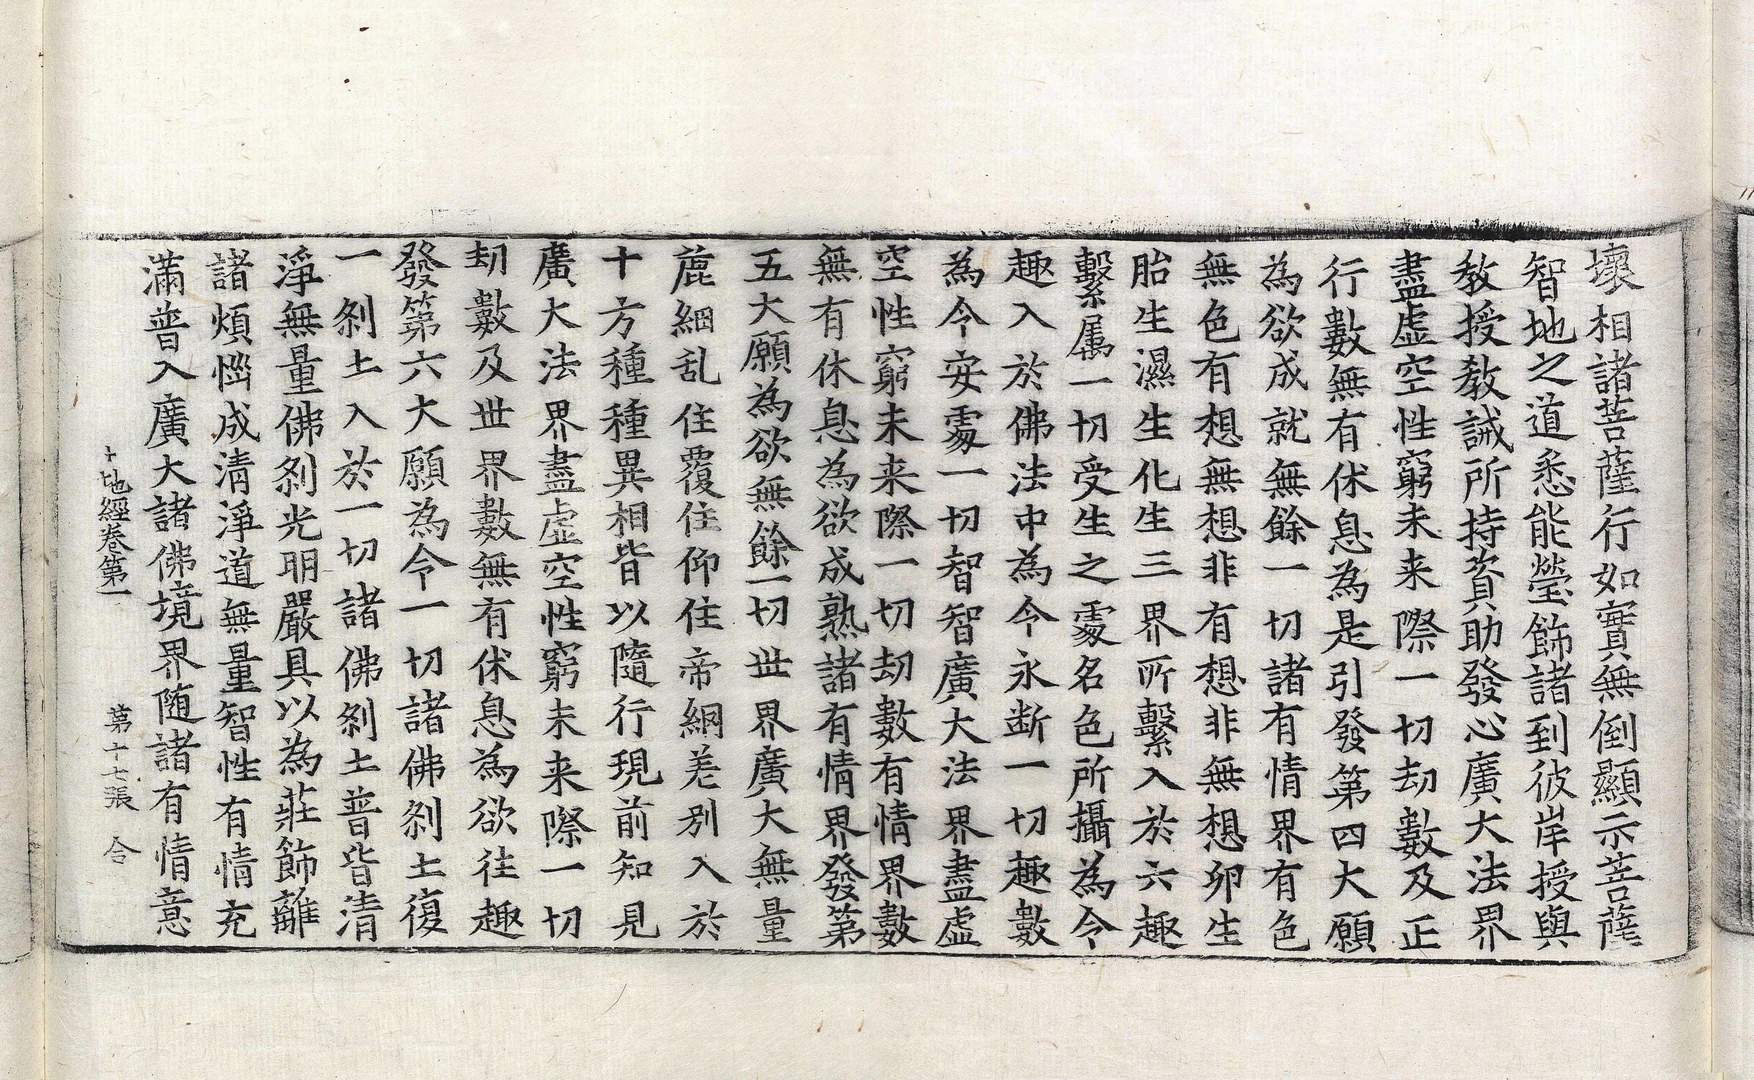 壞相諸菩薩行如實無倒顯示菩薩
智地之道悉能瑩飾諸到彼岸授與
教授教誡所持資助發心廣大法界
盡虛空性窮未来際一切劫數及正
行數無有休息為是引發第四大願
為欲成就無餘一切諸有情界有色
無色有想無想非有想非無想卵生
胎生濕生化生三界所繫入於六趣
繫属一切受生之處名色所攝為令
趣入於佛法中為令永断一切趣數
為令安處一切智智廣大法界盡虛
空性窮未来際一切劫數有情界數
無有休息為欲成熟諸有情界發第
五大願為欲無餘一切世界廣大無量
麁細乱住覆住仰住帝網差别入於
十方種種異相皆以隨行現前知見
廣大法界盡虛空性窮未来際一切
劫數及世界數無有休息為欲往趣
發第六大願為令一切諸佛刹土復
一刹土入於一切諸佛刹土普皆清
淨無量佛刹光明嚴具以為莊飾離
諸煩惱成清淨道無量智性有情充
滿普入廣大諸佛境界随諸有情意
十地經卷第一 第十七張 合